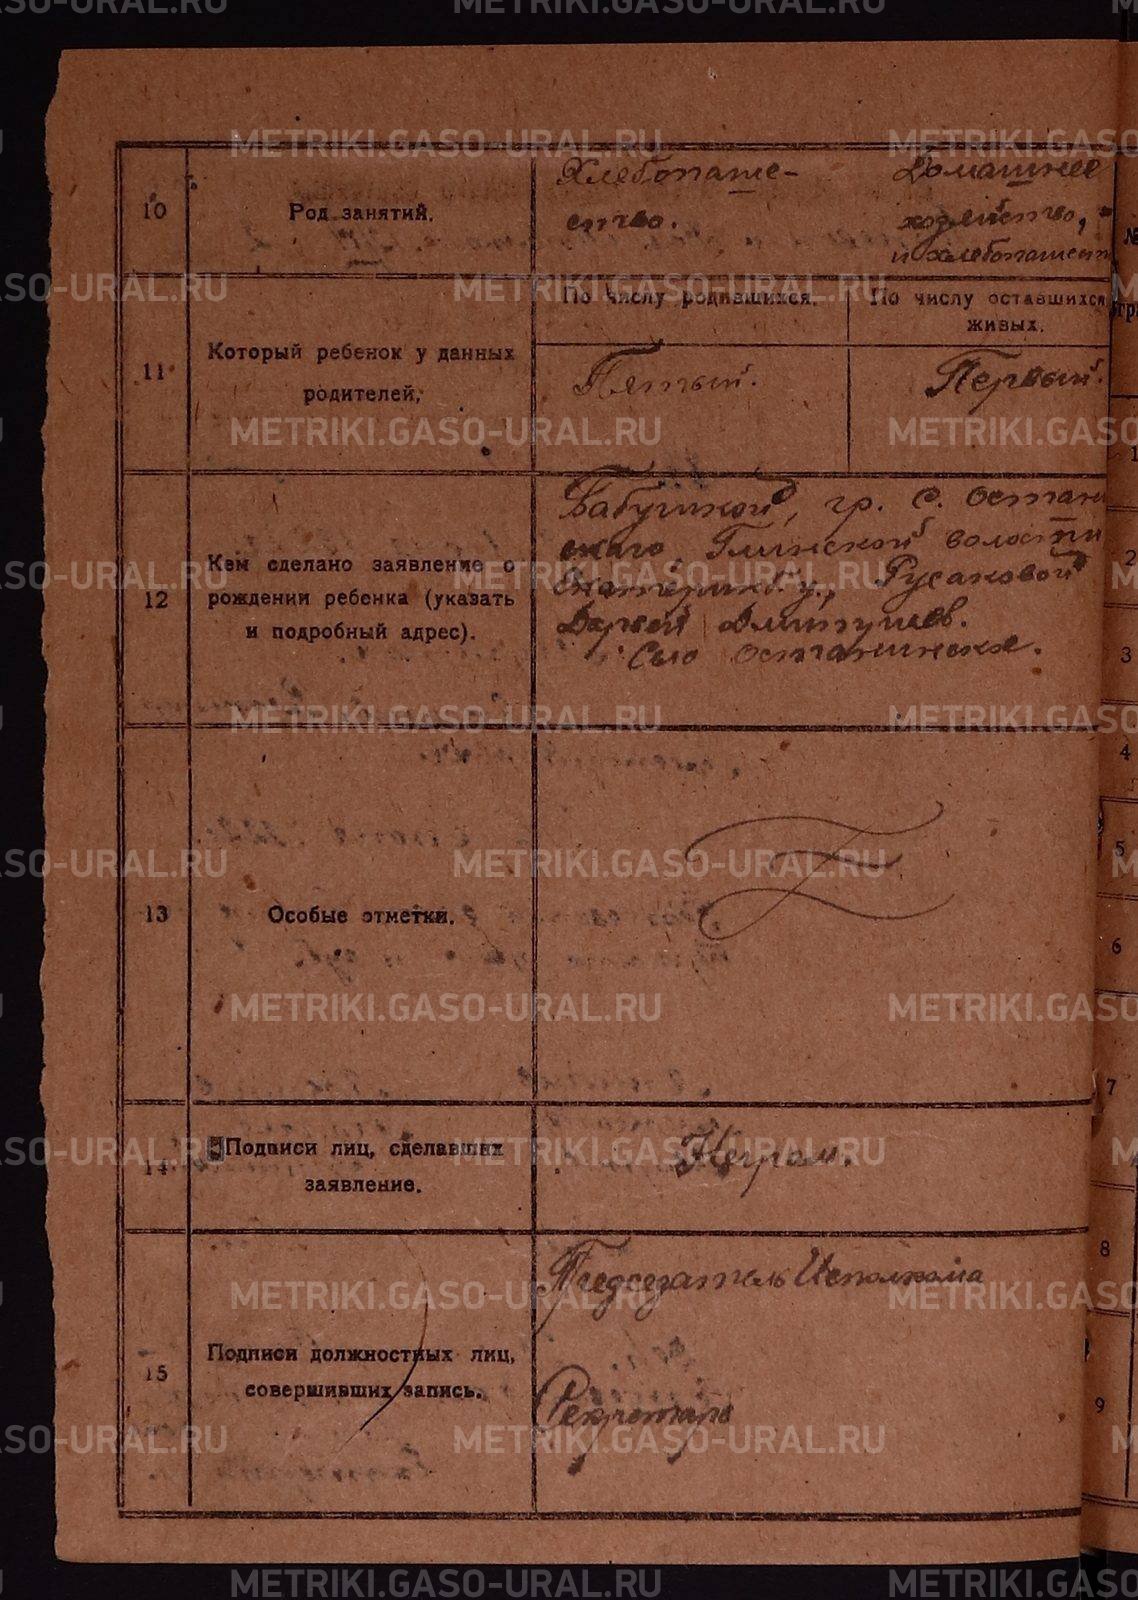 10
Род занятий.
Хлебопаше-
ство.
Домашнее
хозяйство,
и хлебопашест
11
Который ребенок у данных
родителей.
По числу родившихся.
Пятый.
По числу оставшихся
живых.
Первый.
12
Кем сделано заявление о
рождении ребенка (указать
и подробный адрес).
Бабушкой, гр. с. Остани
скаго, Глинской волости
Екатеринб. у., Русаковой
Дарьей
Село Останинское.
13
Особые отметки.
14
Подписи лиц, сделавших
заявление.
Неграм.
15
Подписи должностных лиц,
совершивших запись.
Председатель Исполкома
Секретарь
№
1
2
3
4
5
6
7
8
9
METRIKI.GASO-URAL.RU